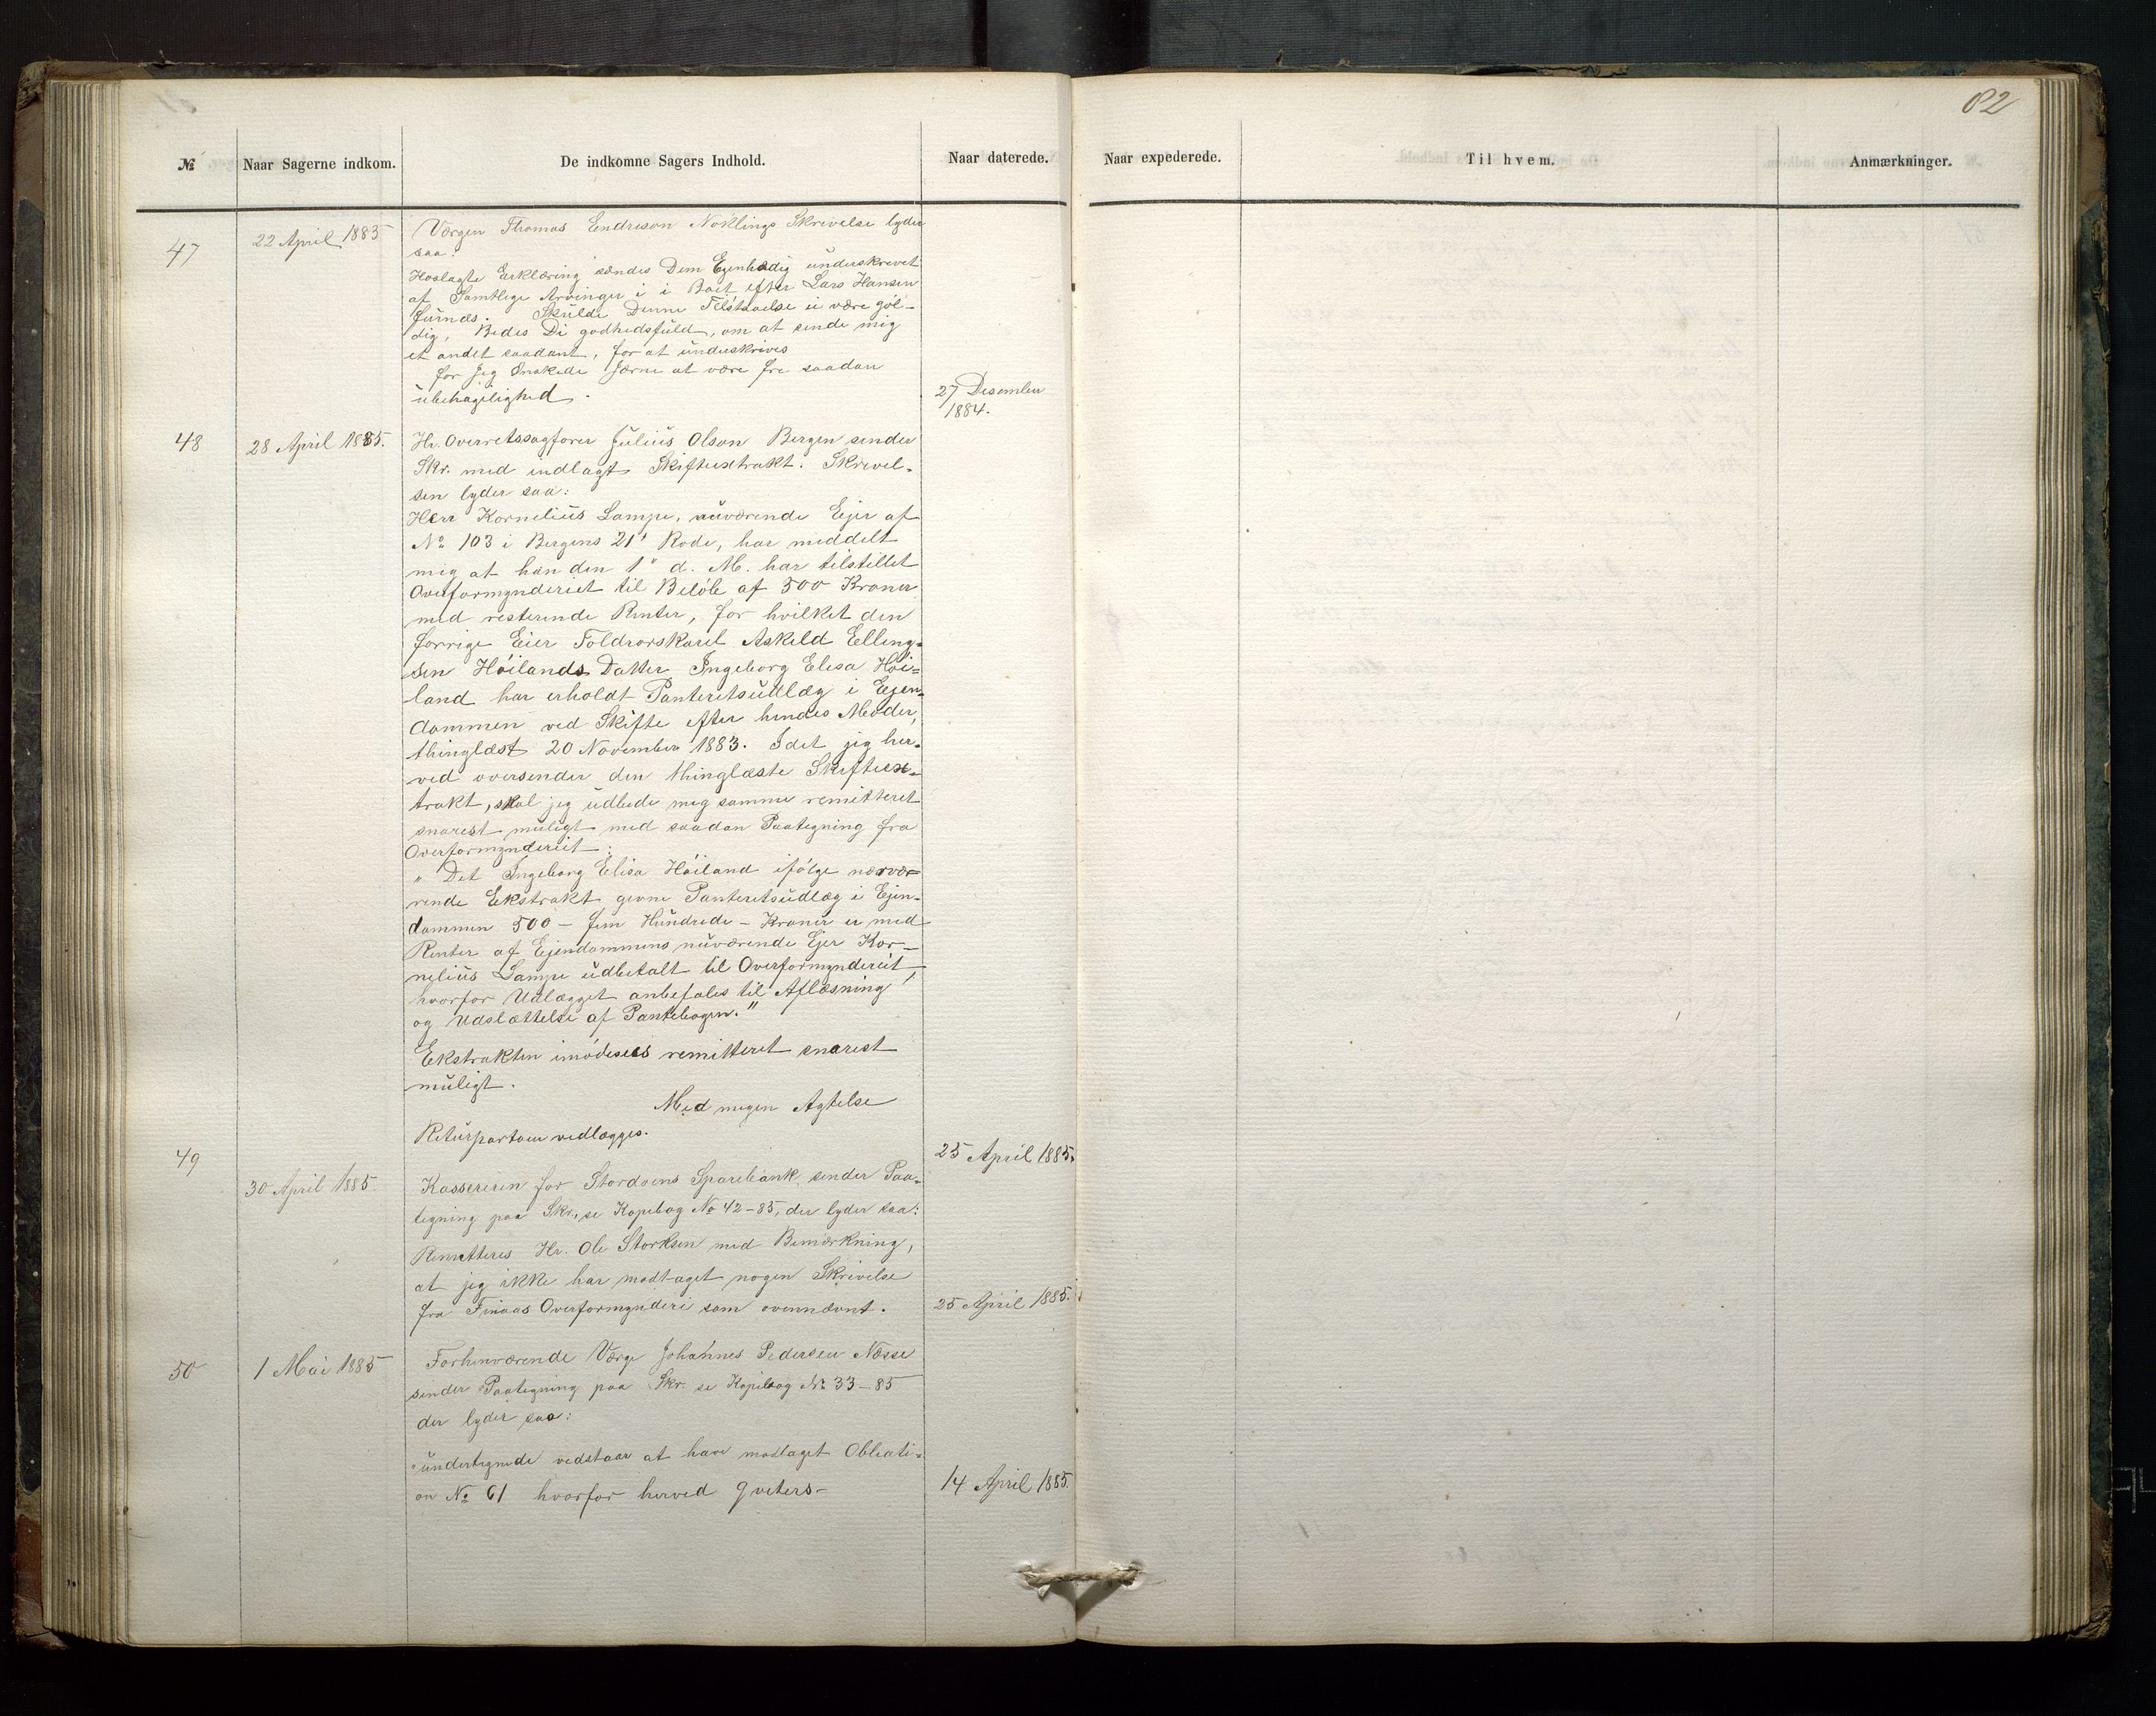 82
№ Naar Sagerne indkom. De indkomne Sagers Indhold. Naar daterede. Naar expederede. Til hvem. Anmærkninger.
47 22 April 1885 Værgen Thomas Endreson Nøklings Skrivelse lyder
saa:
Hoslagte Erklæring sendes Dem Egenhædig underskrevet
af Samtlige Arvinger i i Boet efter Lars Hansen
Furnæs. Skulde Denne Tilstaaelse ei være gøl-
dig, Bedes Di godhedsfuld, om at sende mig
et andet saadant, for at underskrives
for Jeg Ønskede Jærne at være fri saadan
ubehagelighed. 27 Desember
1884.
48 28 April 1885. Hr. Overretssagfører Julius Olson Bergen sender
Skr. med indlagt Skifteextrakt. Skrivel-
sen lyder saa:
Herr Kornelius Lampe, nuværende Ejer af
No 103 i Bergens 21' Rode, har meddelt
mig at han den 1" d. M. har tilstillet
Overformynderiet til Beløb af 500 Kroner
med resterende Renter, for hvilket den
forrige Eier Toldrorskarl Askild Elling-
sen Høilands Datter Ingeborg Elisa Høi-
land har erholdt Panteretsudlæg i Ejen-
dommen ved Skifte efter hendes Moder,
thinglæst 20 November 1883. Idet jeg her-
ved oversender den thinglæste Skifteex-
trakt, skal jeg udbede mig samme remitteret
snarest muligt med saadan Paategning fra
Overformynderiet:
" Det Ingeborg Elisa Høiland ifølge nærvæ-
rende Ekstrakt givne Panteretsudlæg i Ejen-
dommen 500 - fem Hundrede - Kroner er med
Renter af Ejendommens nuværende Ejer Kor-
nelius Lampe udbetalt til Overformynderiet,
hvorfor Udlægget anbefales til Aflæsning
og Udslættelse af Pantebogen."
Ekstrakten imødesees remitteret snarest
muligt.
Med megen Agtelse
Returportoen vedlægges. 25 April 1885.
49 30 April 1885. Kassereren for Stordøens Sparebank, sender Paa-
tegning paa Skr., se Kopibog No 42-85, der lyder saa:
Remitteres Hr. Ole Storksen med Bemærkning,
at jeg ikke har modtaget nogen Skrivelse
fra Finaas Overformynderi som ovennævnt. 25 April 1885.
50 1 Mai 1885 Forhenværende Værge Johannes Pedersen Næsse
sender Paategning paa Skr. se Kopibog No 33-85
der lyder saa:
"undertegnede vedstaar at have modtaget Obleati-
on No 61 hvorfor herved qviters- 14 April 1885.